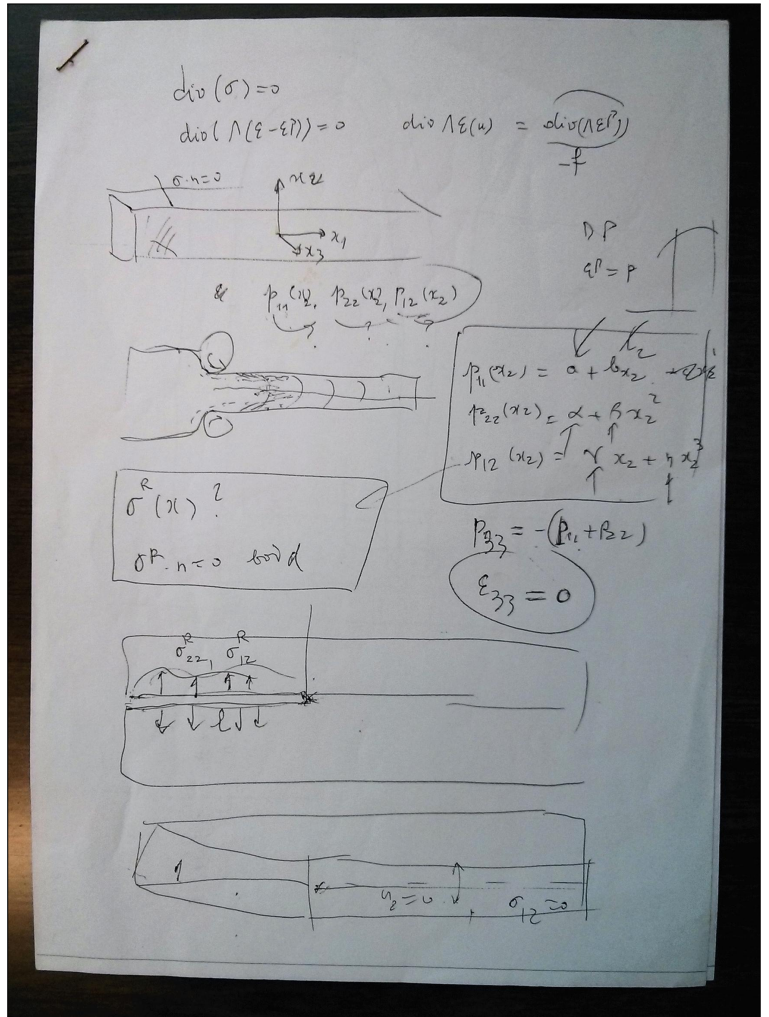 div(σ)=0
div(Λ(ε-εᴾ))=0 div Λε(u) = div(Λεᴾ))
-f
σ.n=0 x2
x1
x3
DP
εᴾ=P
& p11(x2, p22(x2, p12(x2)
? ? ?
p11(x2) = a + b x2
p22(x2) = α + β x2²
p12(x2) = γ x2 + η x2³
σᴿ(x) ?
σᴿ.n=0 bord
P33 = -(p11+p22)
ε33 = 0
σᴿ22, σᴿ12
l
u2=0 σ12=0